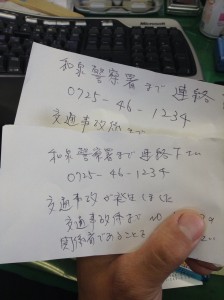 和泉警察署まで 連絡
0725-46-1234
交通事故係まで
和泉警察署まで 連絡下さい
0725-46-1234
交通事故が発生しました
交通事故係まで
関係者であることを